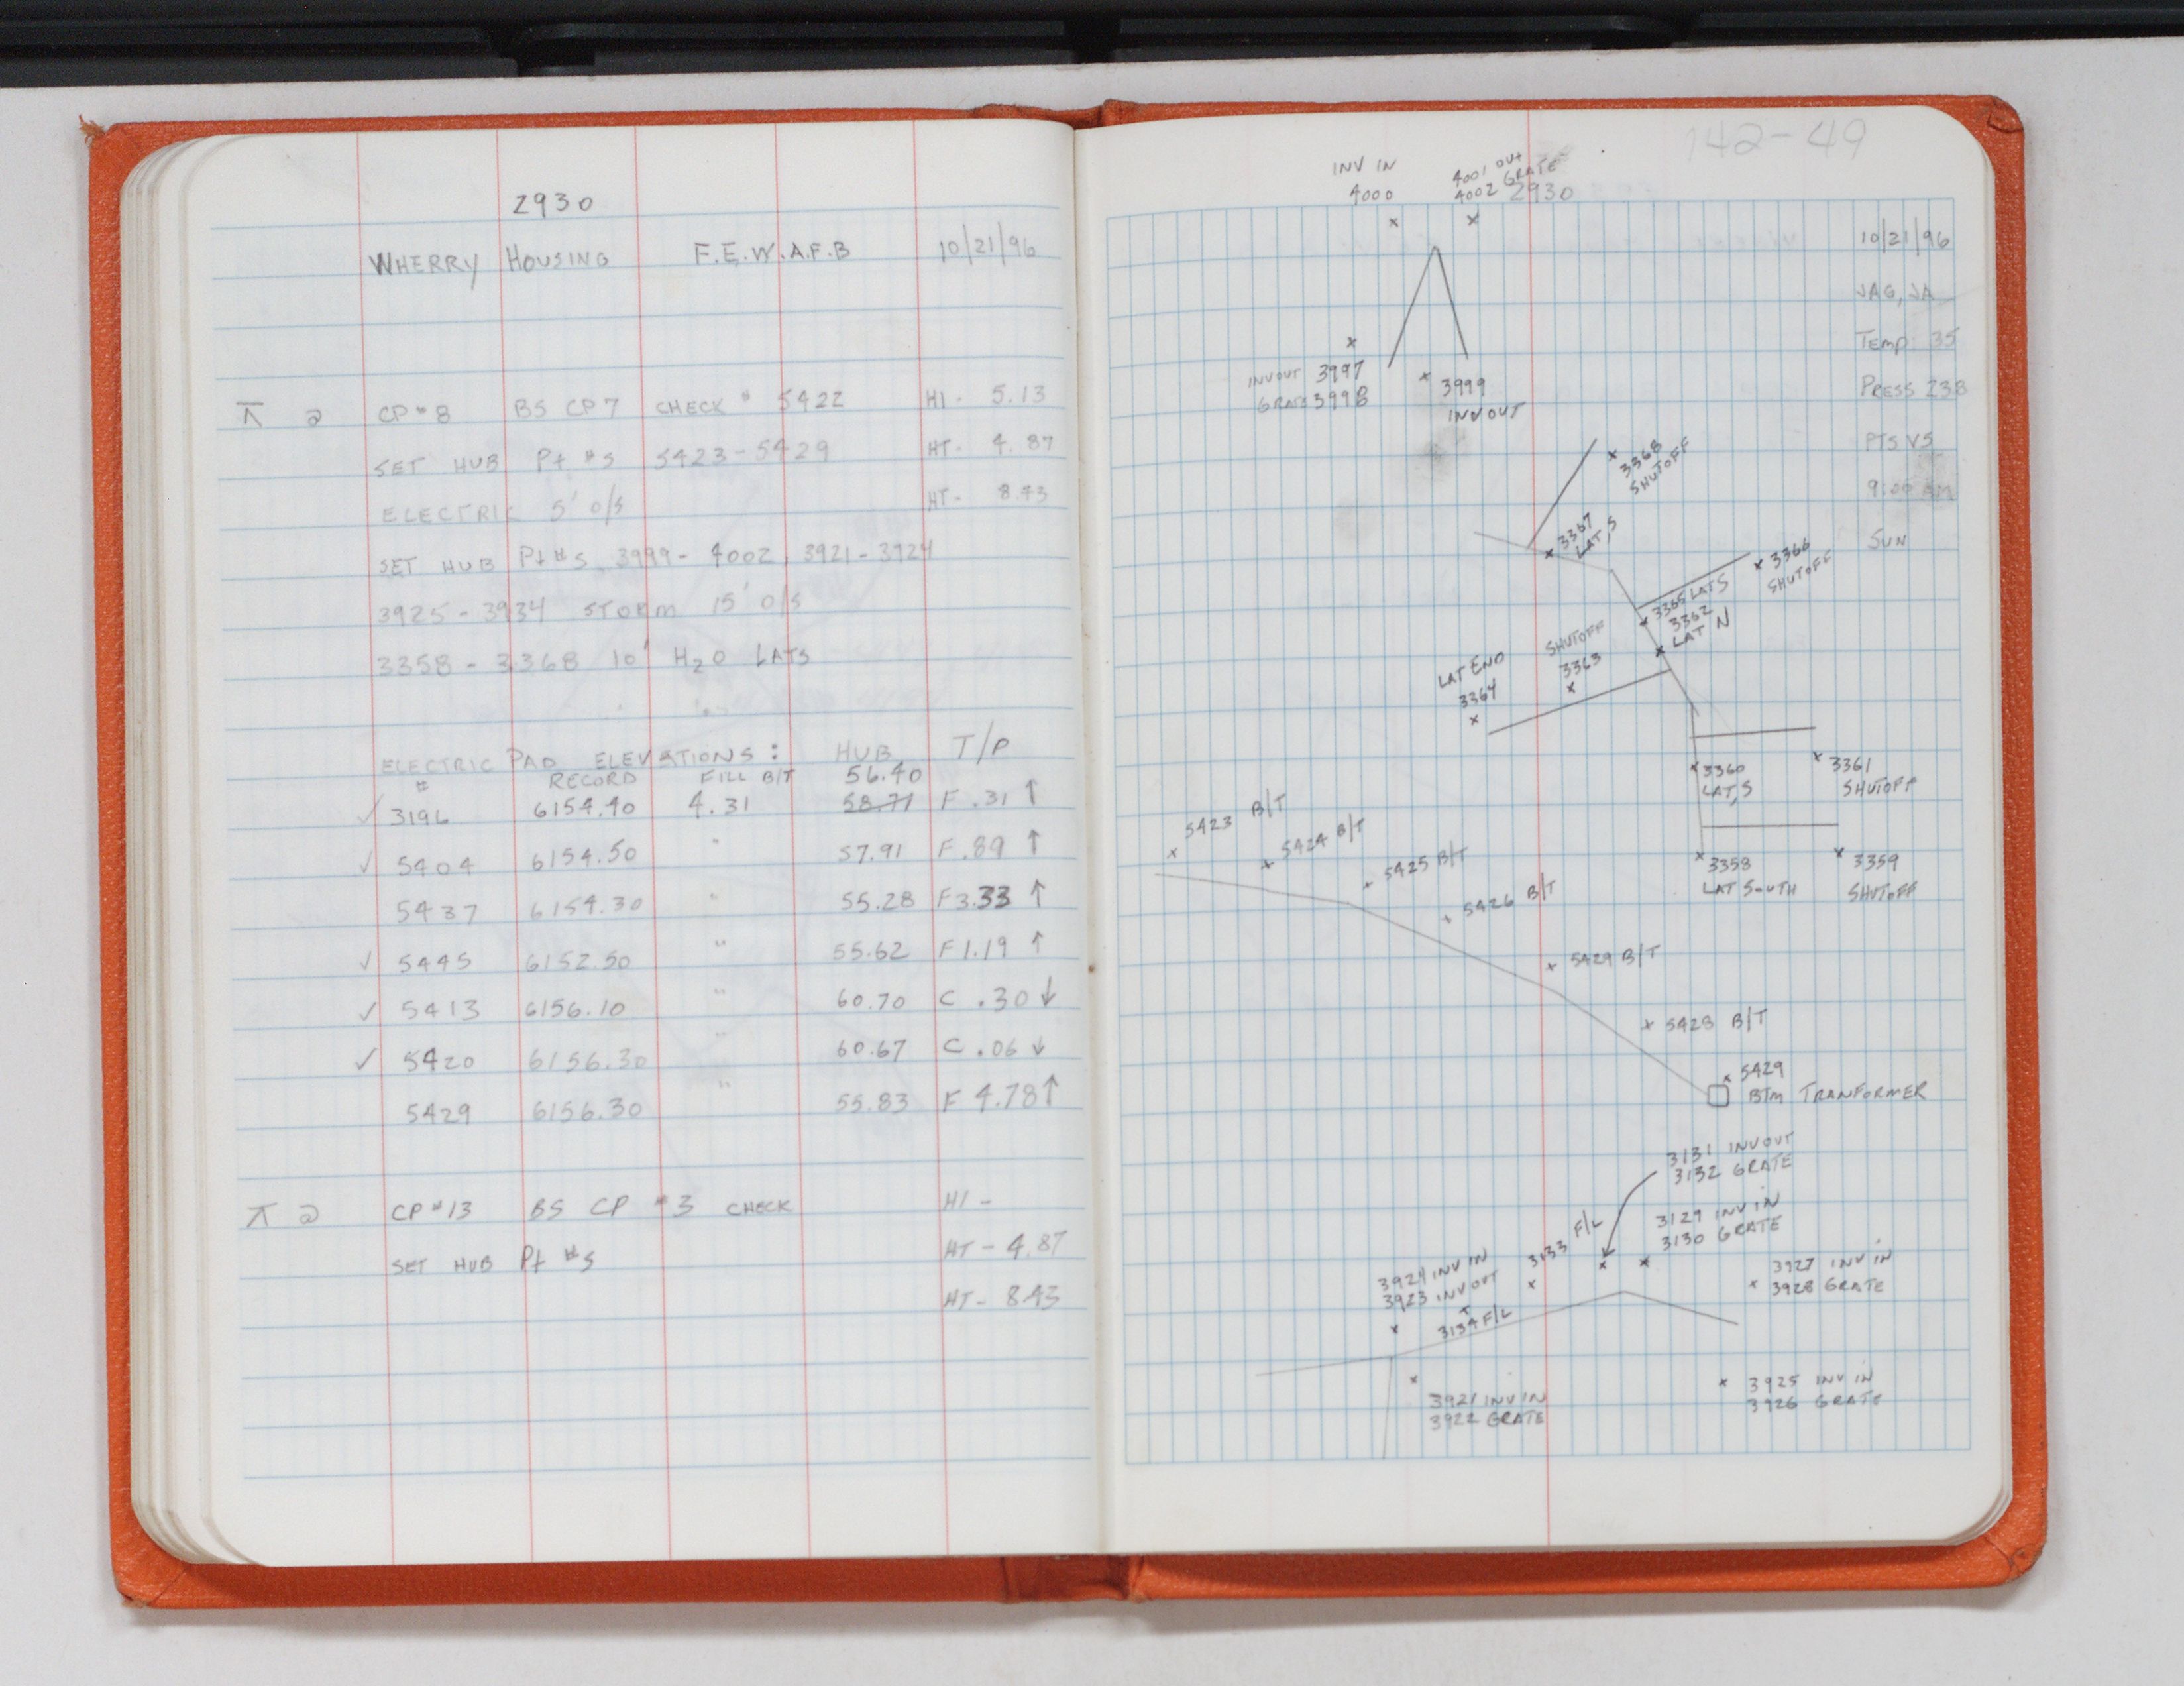 2930
WHERRY HOUSING F.E.W.A.F.B 10/21/96
⊼ @ CP #8 BS CP7 CHECK # 5422 HI - 5.13
SET HUB Pt #s 5423-5429 HT - 4.87
ELECTRIC 5' O/S HT - 8.43
SET HUB Pt #s 3999- 4002, 3921-3924
3925-3934 STORM 15' O/S
3358-3368 10' H2O LATS
ELECTRIC PAD ELEVATIONS: HUB T/P
# RECORD FILL B/T 56.40
✓ 3196 6154.40 4.31 58.71 F .31 ↑
✓ 5404 6154.50 " 57.91 F .89 ↑
5437 6154.30 " 55.28 F 3.33 ↑
✓ 5445 6152.50 " 55.62 F 1.19 ↑
✓ 5413 6156.10 " 60.70 C .30 ↓
✓ 5420 6156.30 " 60.67 C .06 ↓
5429 6156.30 " 55.83 F 4.78 ↑
⊼ @ CP #13 BS CP #3 CHECK HI -
SET HUB Pt #s HT - 4.87
HT - 8.43
142-49
2930
10/21/96
JAG, JA
Temp 35
PRESS 238
PTS VS
9:00 AM
SUN
INV IN
4000
4001 OUT
4002 GRATE
INV OUT 3997
GRATE 3998
3999
INV OUT
3368
SHUTOFF
3367
LAT, S
3366
SHUTOFF
3365 LAT S
3362
LAT N
SHUTOFF
3363
LAT END
3364
3360
LAT, S
3361
SHUTOFF
3358
LAT SOUTH
3359
SHUTOFF
5423 B/T
5424 B/T
5425 B/T
5426 B/T
5429 B/T
5428 B/T
5429
BTM TRANFORMER
3131 INV OUT
3132 GRATE
3129 INV IN
3130 GRATE
3133 F/L
3924 INV IN
3923 INV OUT
3134 F/L
3927 INV IN
3928 GRATE
3921 INV IN
3922 GRATE
3925 INV IN
3926 GRATE